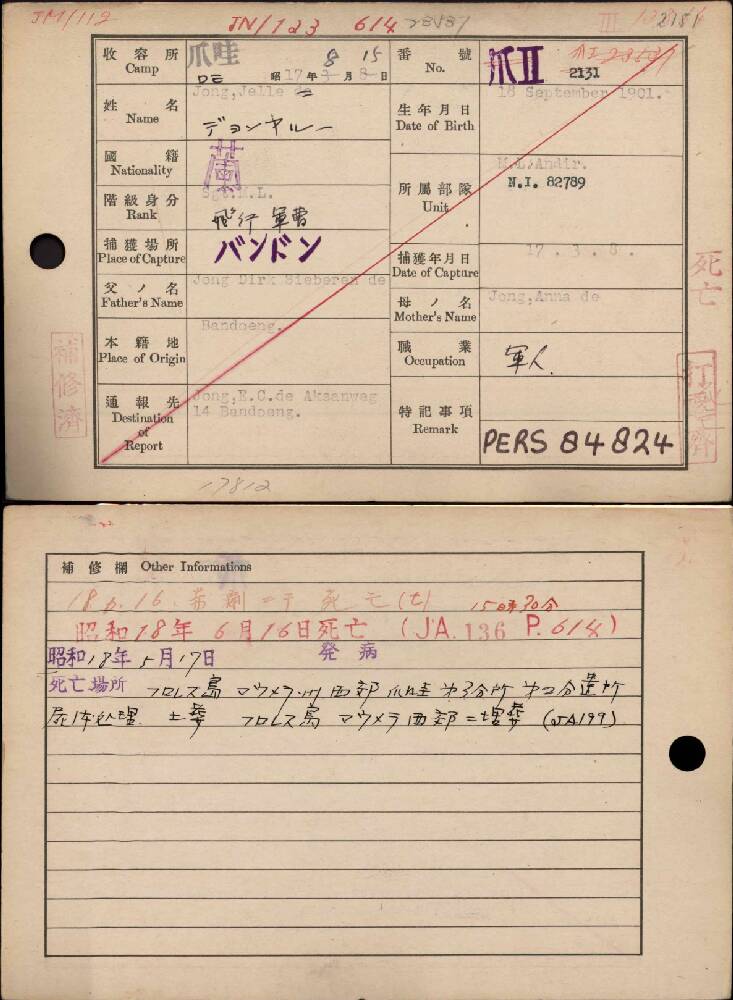 JM/112
JN/123 614 23837
III
2131
收容所 Camp 爪哇 昭17年8月15日
番號 No. 爪II 2131
姓名 Name Jong,Jelle de
デヨンヤルー
生年月日 Date of Birth 18 September 1901.
國籍 Nationality 蘭
階級身分 Rank Sgt.M.L.
飛行軍曹
所属部隊 Unit M.L.Andir.
N.I. 82789
捕獲場所 Place of Capture バンドン
捕獲年月日 Date of Capture 17.3.8.
父ノ名 Father's Name Jong Dirk Sieberen de
母ノ名 Mother's Name Jong,Anna de
本籍地 Place of Origin Bandoeng.
職業 Occupation 軍人
通報先 Destination of Report Jong,E.C.de Aksanweg
14 Bandoeng.
特記事項 Remark
PERS 84824
死亡
補修済
17812
補修欄 Other Informations
18.6.16. 赤痢ニテ死亡(七) 15時30分
昭和18年6月16日死亡 (JA.136 P.614)
昭和18年5月17日 発病
死亡場所 フロレス島 マウメラ 西部 爪哇 分所
屍体処理 土葬 フロレス島 マウメラ西部ニ埋葬 (JA199)